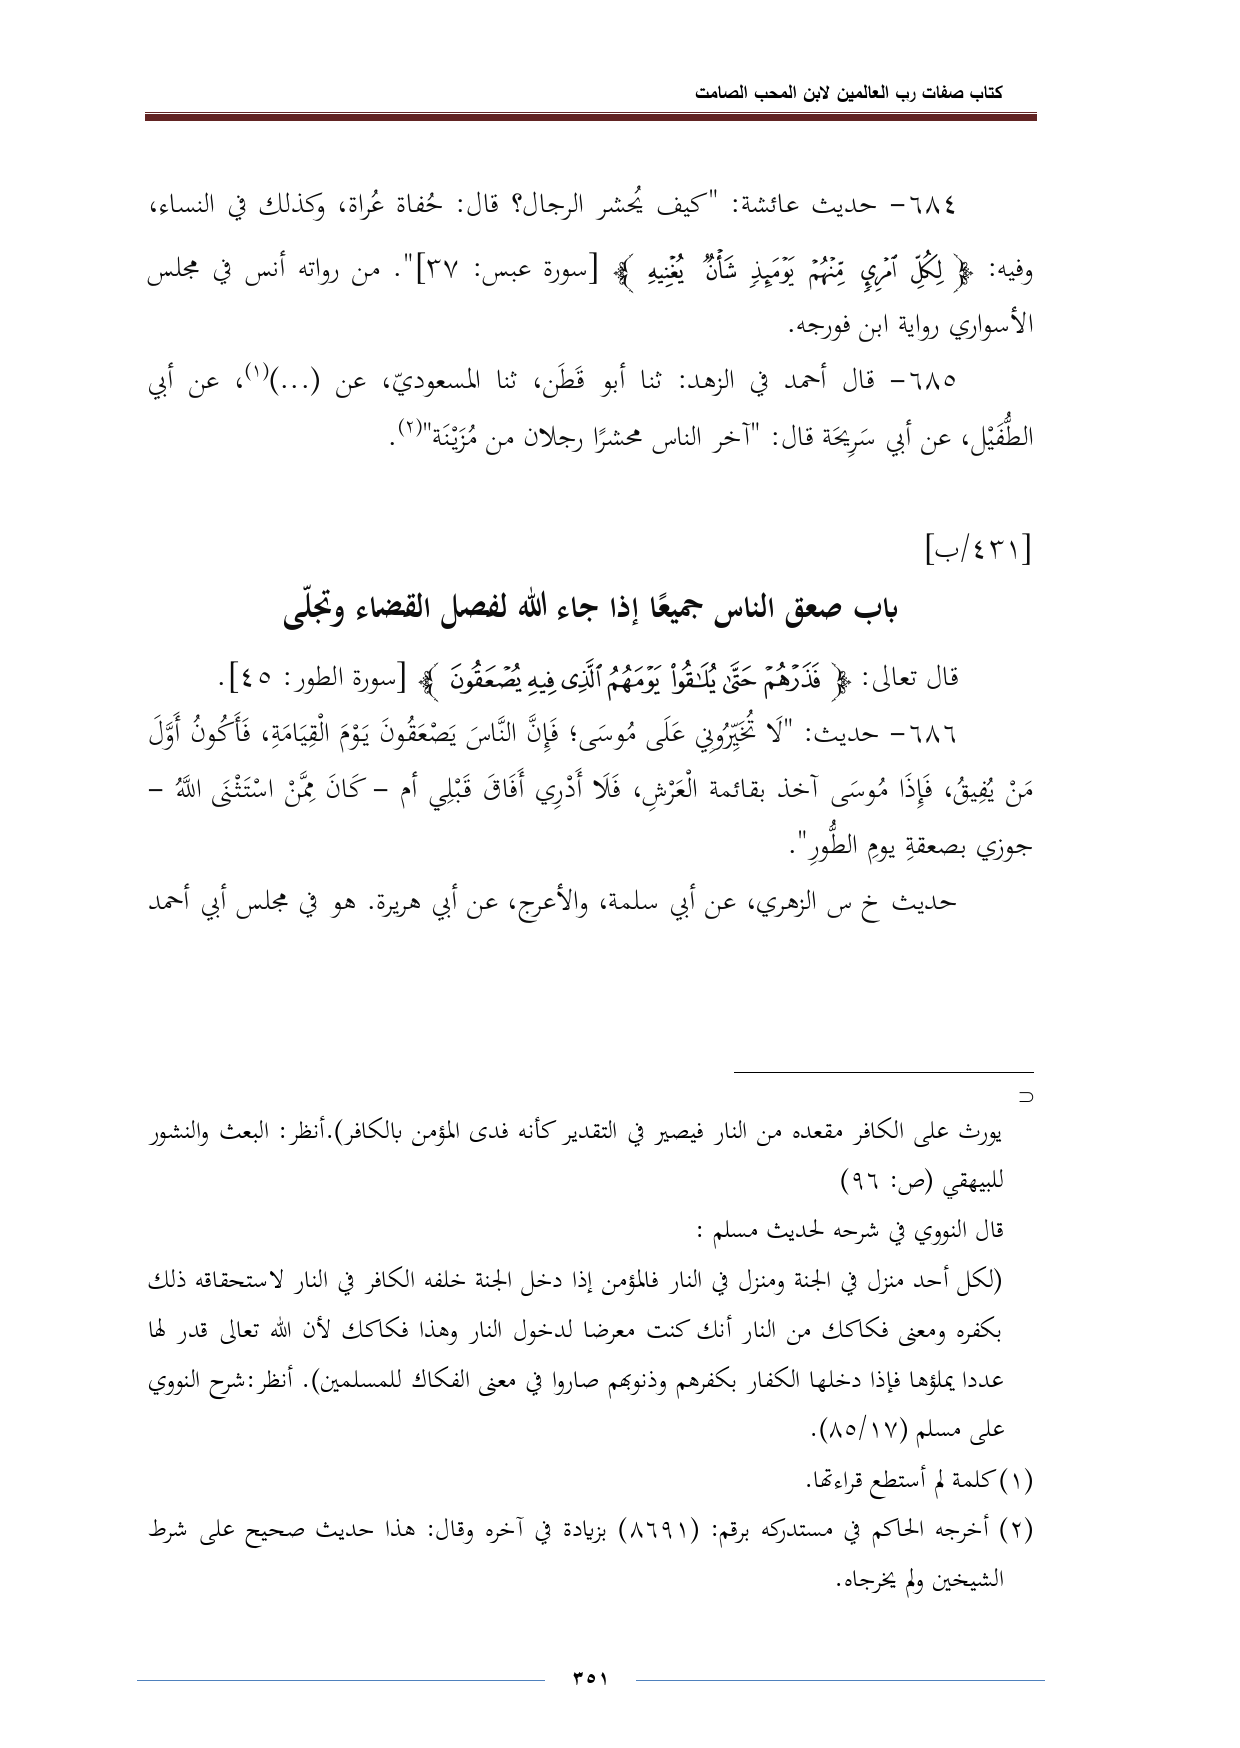 كتاب صفات رب العالمين لابن المحب الصامت
٦٨٤- حديث عائشة: "كيف يُحشر الرجال؟ قال: حُفاة عُراة، وكذلك في النساء،
وفيه: ﴿ لِكُلِّ ٱمْرِيٍٕ مِّنْهُمْ يَوْمَئِذٍ شَأْنٌ يُغْنِيهِ ﴾ [سورة عبس: ٣٧]". من رواته أنس في مجلس
الأسواري رواية ابن فورجه.
٦٨٥- قال أحمد في الزهد: ثنا أبو قَطَن، ثنا المسعوديّ، عن (...)(١)، عن أبي
الطُّفَيْل، عن أبي سَرِيحَة قال: "آخر الناس محشرًا رجلان من مُزَيْنَة"(٢).
[٤٣١/ب]
باب صعق الناس جميعًا إذا جاء الله لفصل القضاء وتجلّى
قال تعالى: ﴿ فَذَرْهُمْ حَتَّىٰ يُلَٰقُوا۟ يَوْمَهُمُ ٱلَّذِى فِيهِ يُصْعَقُونَ ﴾ [سورة الطور: ٤٥].
٦٨٦- حديث: "لَا تُخَيِّرُونِي عَلَى مُوسَى؛ فَإِنَّ النَّاسَ يَصْعَقُونَ يَوْمَ الْقِيَامَةِ، فَأَكُونُ أَوَّلَ
مَنْ يُفِيقُ، فَإِذَا مُوسَى آخذ بقائمة الْعَرْشِ، فَلَا أَدْرِي أَفَاقَ قَبْلِي أم - كَانَ مِمَّنْ اسْتَثْنَى اللَّهُ -
جوزي بصعقةِ يومِ الطُّورِ".
حديث خ س الزهري، عن أبي سلمة، والأعرج، عن أبي هريرة. هو في مجلس أبي أحمد
⊃
يورث على الكافر مقعده من النار فيصير في التقدير كأنه فدى المؤمن بالكافر).أنظر: البعث والنشور
للبيهقي (ص: ٩٦)
قال النووي في شرحه لحديث مسلم :
(لكل أحد منزل في الجنة ومنزل في النار فالمؤمن إذا دخل الجنة خلفه الكافر في النار لاستحقاقه ذلك
بكفره ومعنى فكاكك من النار أنك كنت معرضا لدخول النار وهذا فكاكك لأن الله تعالى قدر لها
عددا يملؤها فإذا دخلها الكفار بكفرهم وذنوبهم صاروا في معنى الفكاك للمسلمين). أنظر:شرح النووي
على مسلم (٨٥/١٧).
(١)كلمة لم أستطع قراءتها.
(٢) أخرجه الحاكم في مستدركه برقم: (٨٦٩١) بزيادة في آخره وقال: هذا حديث صحيح على شرط
الشيخين ولم يخرجاه.
٣٥١